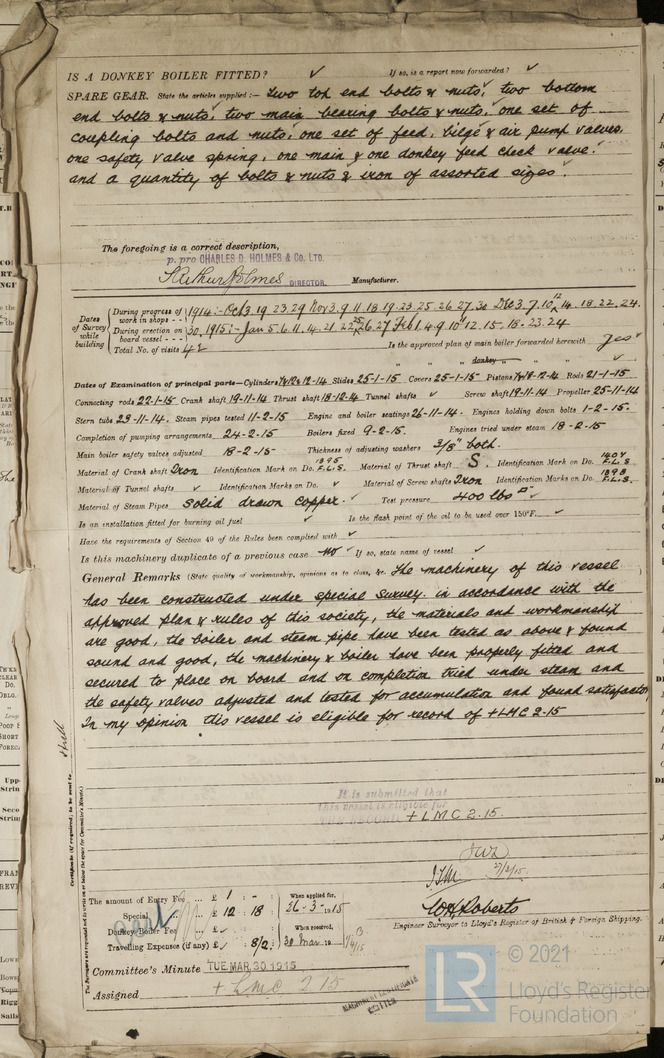 IS A DONKEY BOILER FITTED? ✓ If so, is a report now forwarded? ✓
SPARE GEAR. State the articles supplied:— Two top end bolts & nuts, two bottom
end bolts & nuts, two main bearing bolts & nuts, one set of
coupling bolts and nuts, one set of feed, bilge & air pump valves.
one safety valve spring, one main & one donkey feed check valve.
and a quantity of bolts & nuts & iron of assorted sizes.
The foregoing is a correct description,
p. pro CHARLES D. HOLMES & Co. LTD.
Arthur Holmes DIRECTOR. Manufacturer.
Dates of Survey while building
During progress of work in shops - - 1914:- Oct 3. 19. 23. 29 Nov 3. 9. 11. 18. 19. 23. 25. 26. 27. 30 Dec 3. 7. 10. 12 14. 18. 22. 24.
During erection on board vessel - - - 30, 1915:- Jan 5. 6. 11. 14. 21. 22. 25 26. 27 Feb 1. 4. 9. 10. 12. 15. 18. 23. 24
Total No. of visits 42 Is the approved plan of main boiler forwarded herewith Yes ✓
" " " donkey " " " ✓
Dates of Examination of principal parts—Cylinders 12-14 Slides 25-1-15 Covers 25-1-15 Pistons 12-14 Rods 21-1-15
Connecting rods 22-1-15 Crank shaft 19-11-14 Thrust shaft 18-12-14 Tunnel shafts ✓ Screw shaft 19-11-14 Propeller 25-11-14
Stern tube 23-11-14. Steam pipes tested 11-2-15 Engine and boiler seatings 26-11-14. Engines holding down bolts 1-2-15.
Completion of pumping arrangements 24-2-15 Boilers fixed 9-2-15. Engines tried under steam 18-2-15
Main boiler safety valves adjusted 18-2-15 Thickness of adjusting washers 3/8" both.
Material of Crank shaft Iron Identification Mark on Do. F.L.S. Material of Thrust shaft S. Identification Mark on Do. F.L.S
Material of Tunnel shafts ✓ Identification Marks on Do. ✓ Material of Screw shafts Iron Identification Marks on Do. F.L.S.
Material of Steam Pipes Solid drawn copper. ✓ Test pressure 400 lbs □" ✓
Is an installation fitted for burning oil fuel ✓ Is the flash point of the oil to be used over 150°F. ✓
Have the requirements of Section 49 of the Rules been complied with ✓
Is this machinery duplicate of a previous case No ✓ If so, state name of vessel ✓
General Remarks (State quality of workmanship, opinions as to class, &c. The machinery of this vessel
has been constructed under special survey. in accordance with the
approved plan & rules of this society, the materials and workmanship
are good, the boiler and steam pipe have been tested as above & found
sound and good, the machinery & boiler have been properly fitted and
secured to place on board and on completion tried under steam and
the safety valves adjusted and tested for accumulation and found satisfactory
In my opinion this vessel is eligible for record of +LMC 2-15
It is submitted that
this vessel is eligible for
THE RECORD. + LMC 2. 15.
27/3/15.
The amount of Entry Fee .. £ 1 : - : When applied for,
Special .. £ 12 : 18 : 26-3-1915
Donkey Boiler Fee .. £ ✓ : : When received,
Travelling Expenses (if any) £ ✓ : 8/2 : 30 Mar. 19
W. Roberts
Engineer Surveyor to Lloyd's Register of British & Foreign Shipping.
Committee's Minute TUE. MAR. 30 1915
Assigned + LMC 2 15
MACHINERY CERTIFICATE
© 2021
Lloyd's Register
Foundation